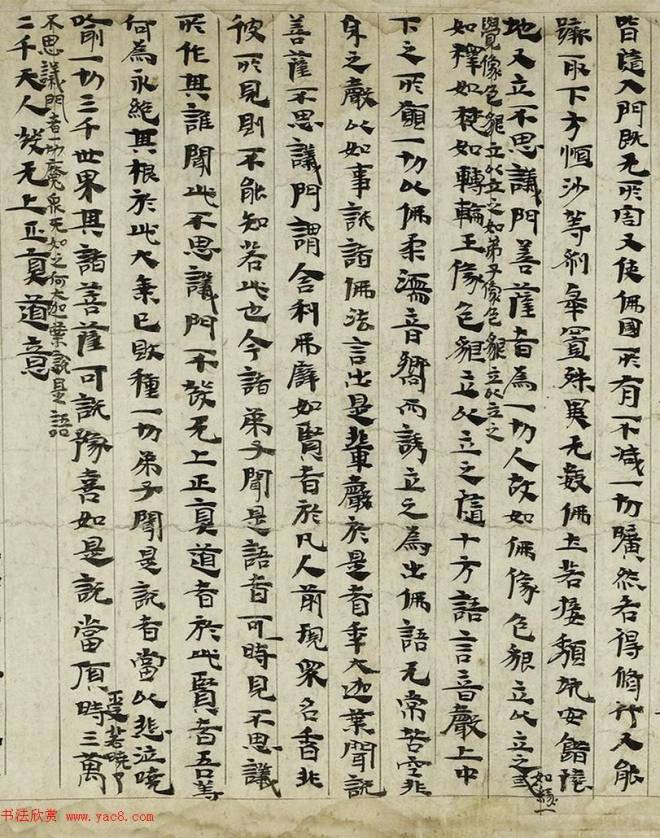 皆隨入門既无所害又使佛國所有不減一切曠然若得脩行又能
取下方恒沙等剎舉置殊異无數佛土若接安
地又立不思議門菩薩者為一切人故如佛像色貌立以立之或如緣一
覺像色貌立以立之如弟子像色貌立以立之
如釋如梵如轉輪王像色貌立以立之隨十方語言音聲上中
下之所願一切以佛柔濡音響而誘立之為出佛語无常苦空非
身之聲以如事說諸佛法言出是輩聲於是耆年大迦葉聞說
菩薩不思議門謂舍利弗譬如賢者於凡人前現眾名香非
彼所見則不能知若此也今諸弟子聞是語者可一時見不思議
所作其誰聞此不思議門不發无上正真道者於此賢者吾等
何為永絕其根於此大乘已敗種一切弟子聞是說者當以悲泣曉
喻一切三千世界其諸菩薩可說豫喜如是說當頂受若曉了
不思議門者一切魔眾无如之何大迦葉說是語
時三萬
二千天人發无上正真道意
书法欣赏 www.yac8.com